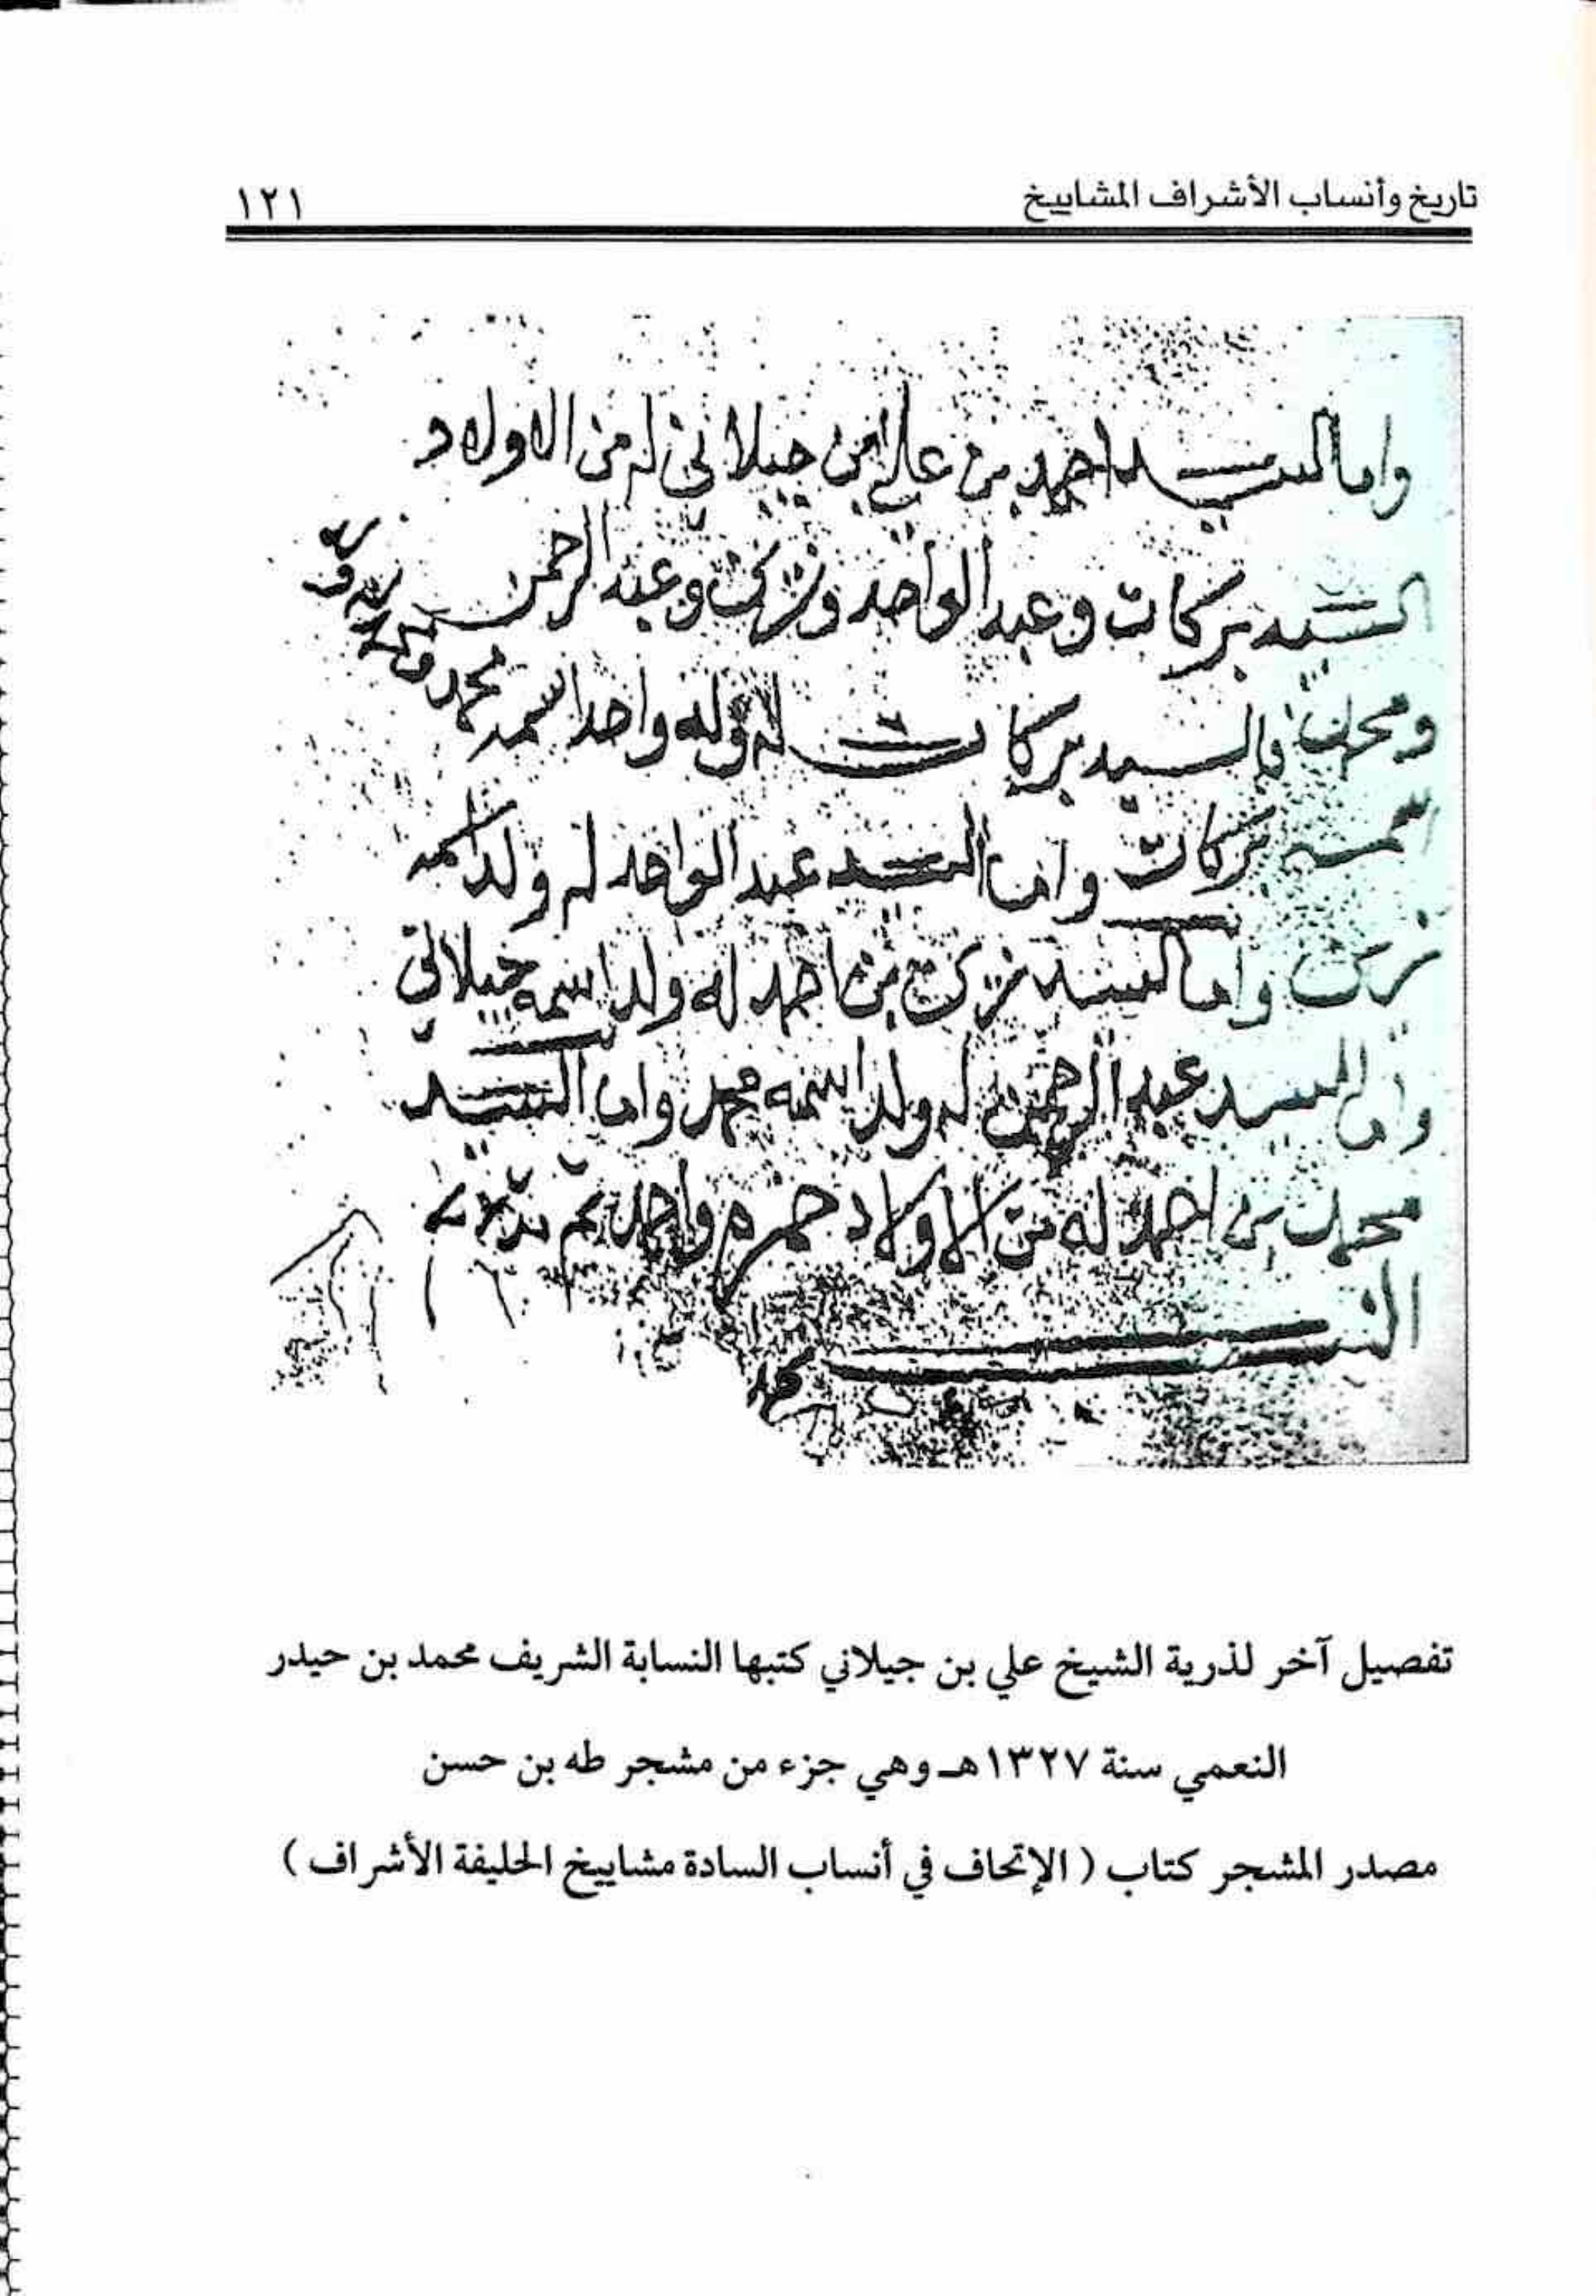 تاريخ وأنساب الأشراف المشاييخ ١٢١
واما السيد احمد بن علي بن جيلاني له من الاولاد
السيد بركات وعبد الواحد وتركي وعبد الرحمن
ومحمد فالسيد بركات له ولد واحد اسمه محمد
اسمه بركات واما السيد عبد الواحد له ولد اسمه
تركي واما السيد تركي بن احمد له ولد اسمه جيلاني
واما السيد عبد الرحمن له ولد اسمه محمد واما السيد
محمد بن احمد له من الاولاد حمزه واحمد
تفصيل آخر لذرية الشيخ علي بن جيلاني كتبها النسابة الشريف محمد بن حيدر
النعمي سنة ١٣٢٧هـ وهي جزء من مشجر طه بن حسن
مصدر المشجر كتاب ( الإتحاف في أنساب السادة مشاييخ الحليفة الأشراف )